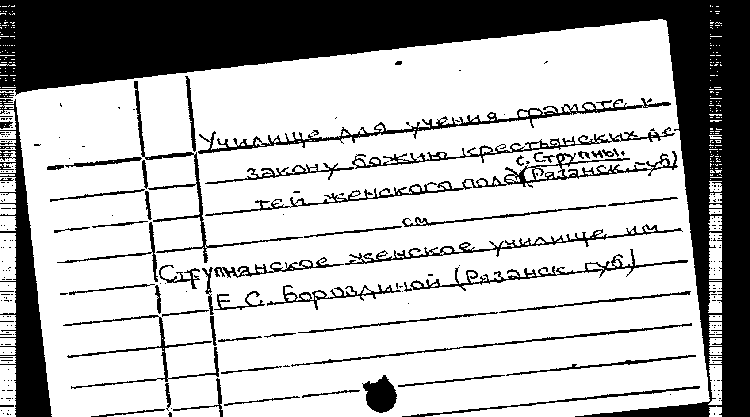 Училище для учения грамоте к
закону божию крестьянских де-
тей женского пола (с. Струпны.
Рязанск. губ)
см
Струпнанское женское училище им
Е. С. Бороздиной (Рязанск. губ.)